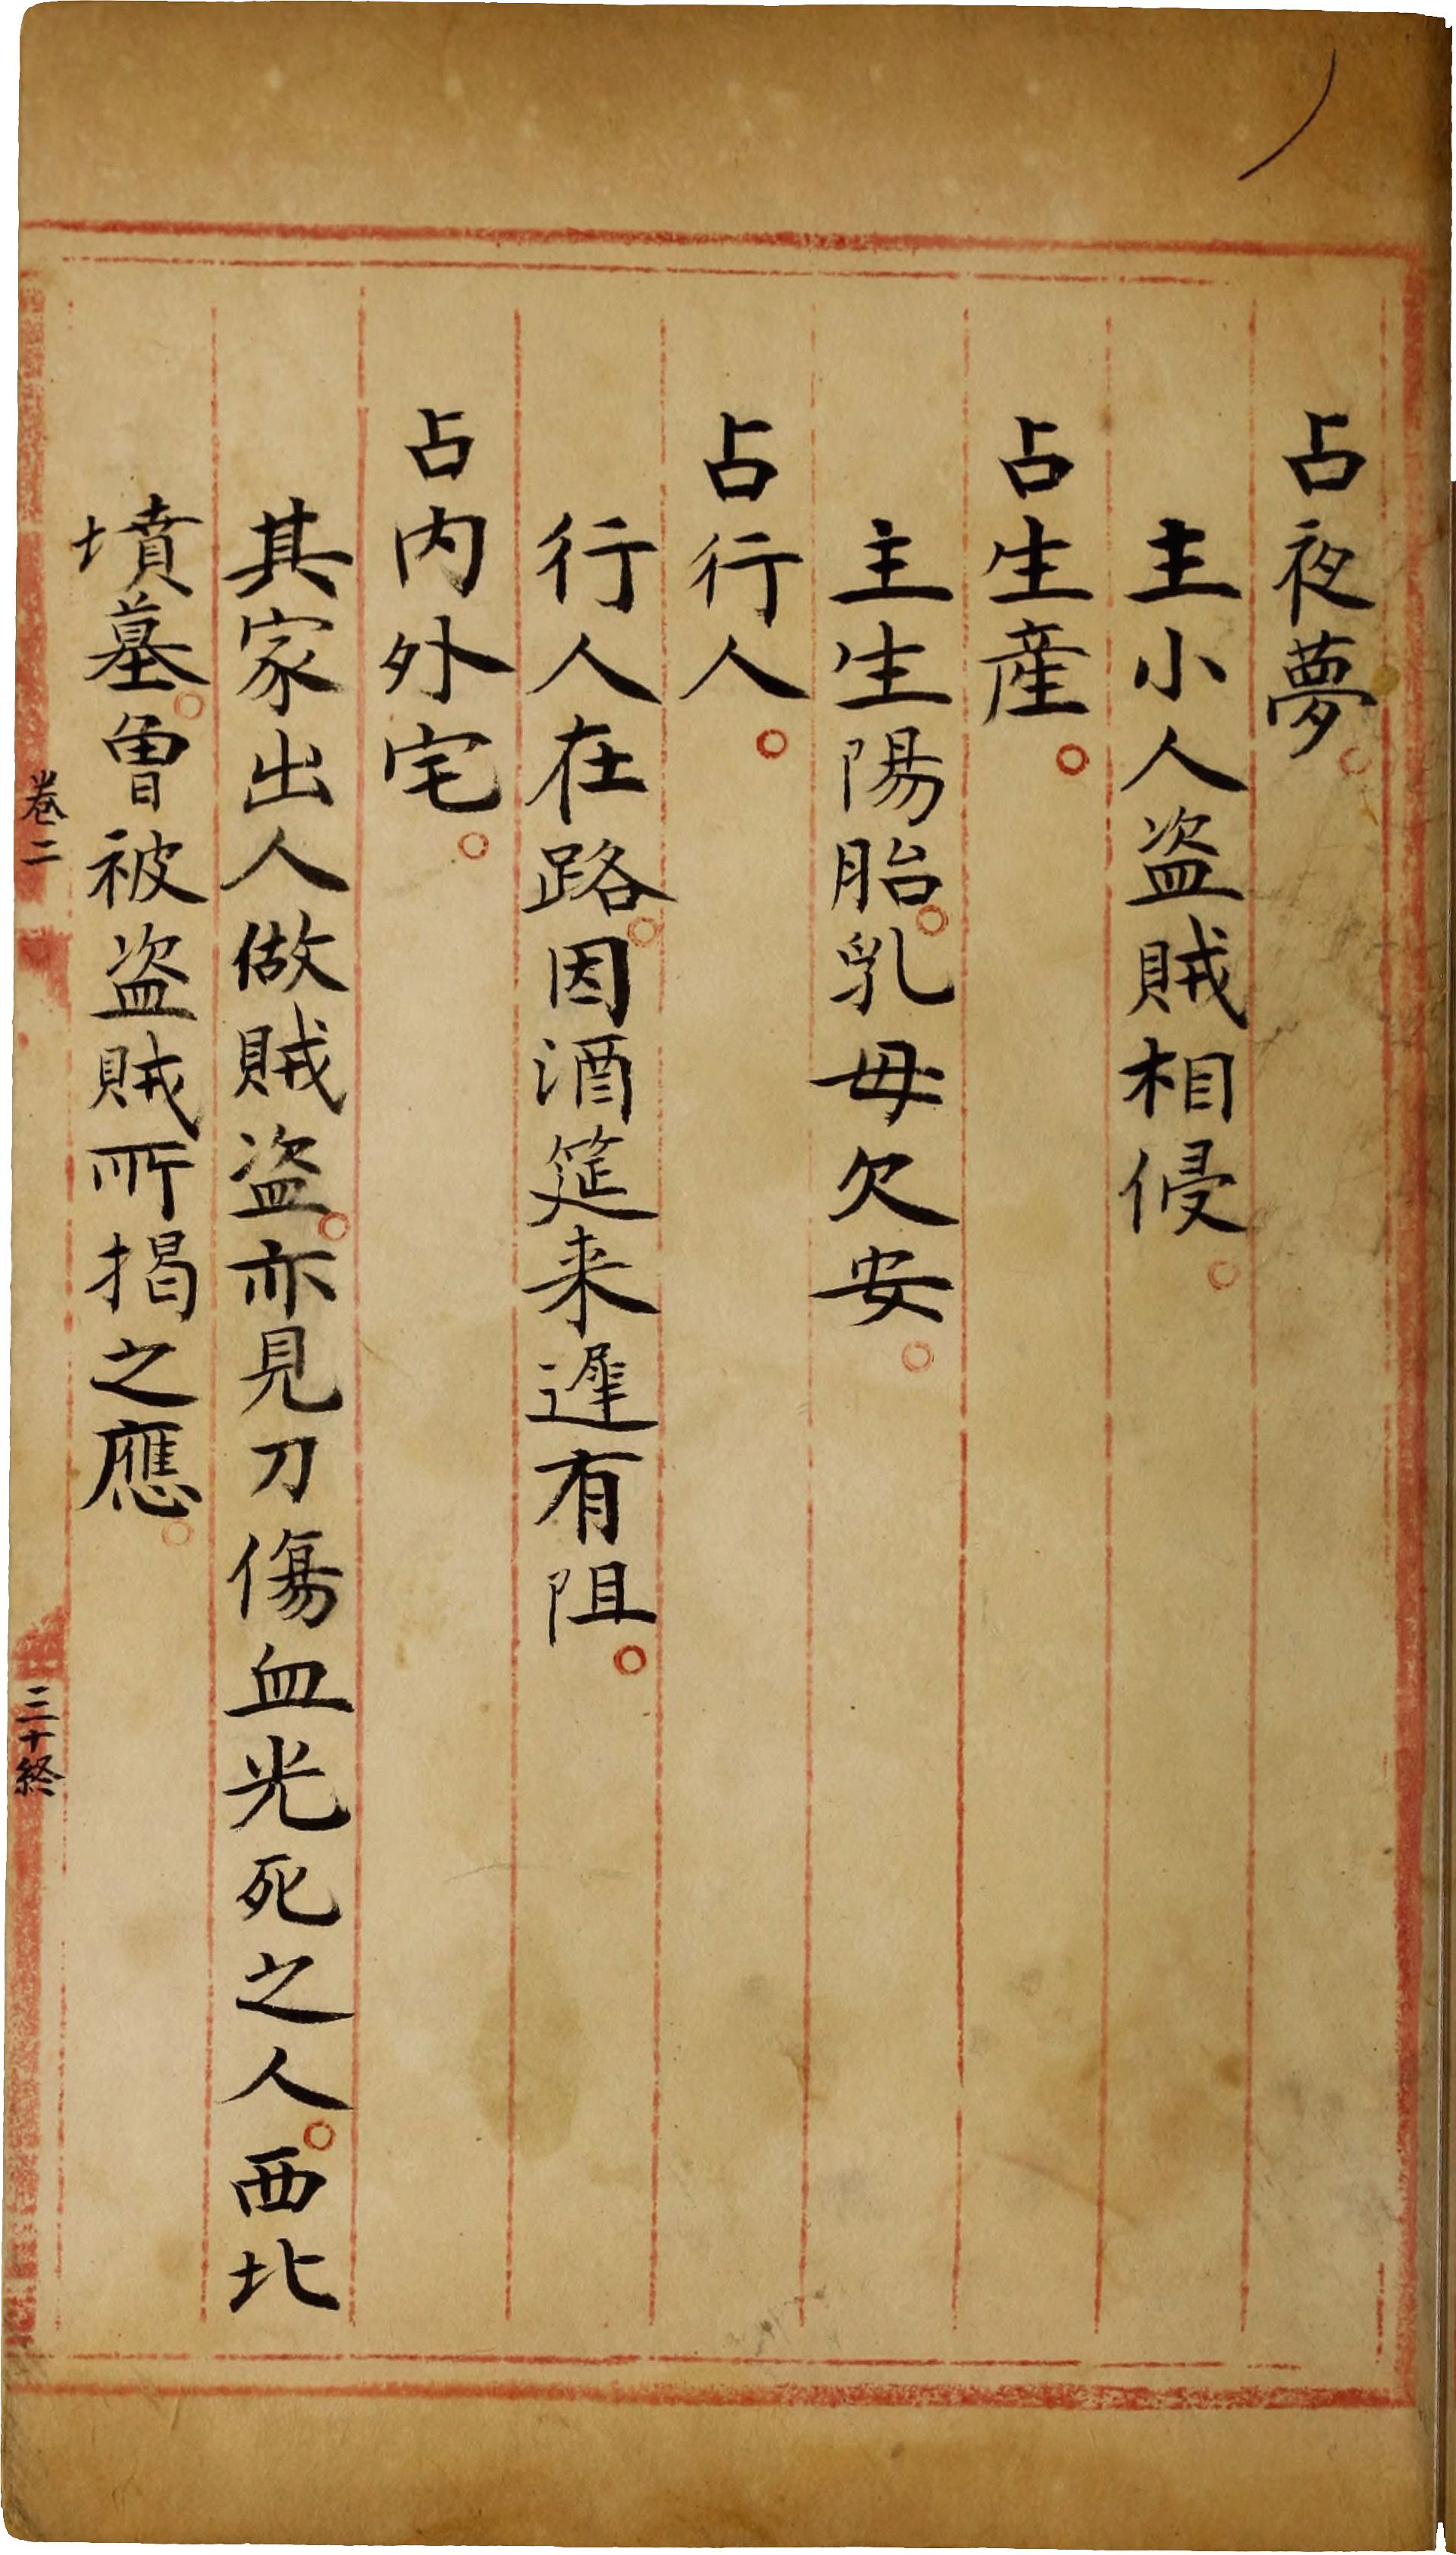 占夜夢。
主小人盗賊相侵。
占生産。
主生陽胎。乳母欠安。
占行人。
行人在路。因酒筵来遲有阻。
占内外宅。
其家出人做賊盗。亦見刀傷血光死之人。西北
墳墓。曽被盗賊所掲之應。
卷二
三十終